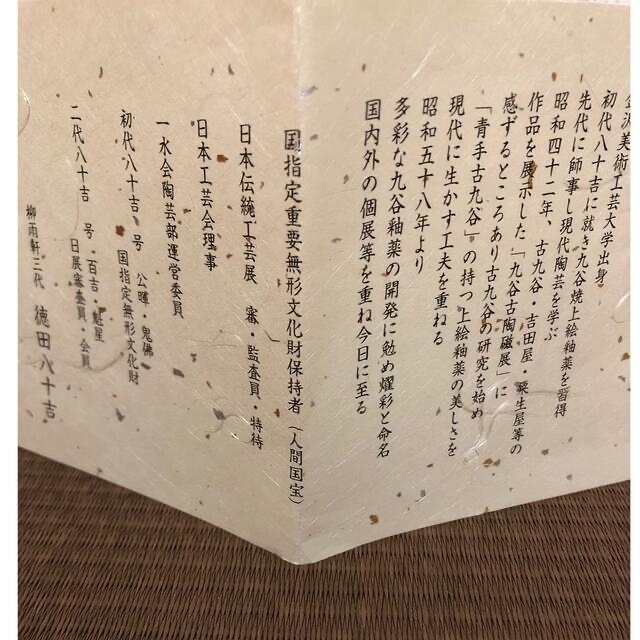 金沢美術工芸大学出身
初代八十吉に就き九谷焼上絵釉薬を習得
先代に師事し現代陶芸を学ぶ
昭和四十二年、古九谷・吉田屋・粟生屋等の
作品を展示した「九谷古陶磁展」に
感ずるところあり古九谷の研究を始め
「青手古九谷」の持つ上絵釉薬の美しさを
現代に生かす工夫を重ねる
昭和五十八年より
多彩な九谷釉薬の開発に勉め燿彩と命名
国内外の個展等を重ね今日に至る
国指定重要無形文化財保持者(人間国宝)
日本伝統工芸展 審・監査員・特待
日本工芸会理事
一水会陶芸部運営委員
初代八十吉 号 公暉・鬼佛
国指定無形文化財
二代八十吉 号・百吉・魁星
日展審査員・会員
柳雨軒三代 徳田八十吉